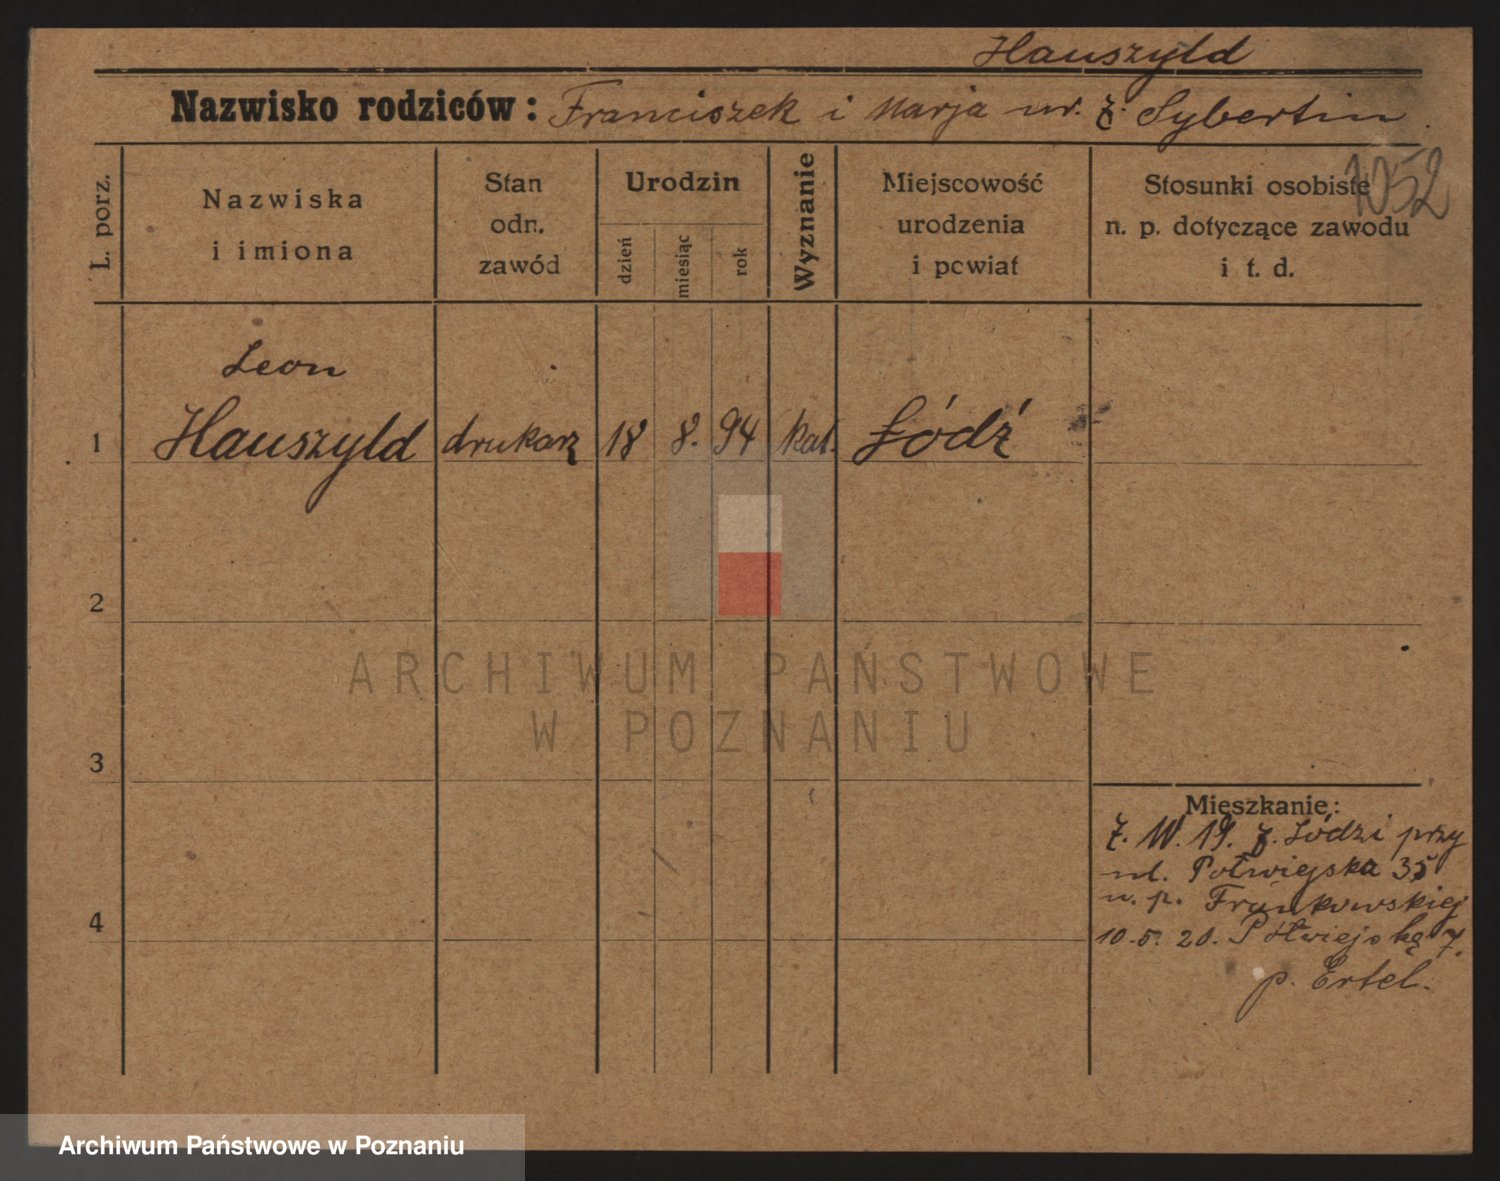 Hauszyld
Nazwisko rodziców: Franciszek i Marja ur. z. Sybertin
1052
L. porz.
Nazwiska
i imiona
Stan
odn.
zawód
Urodzin
dzień
miesiąc
rok
Wyznanie
Miejscowość
urodzenia
i powiat
Stosunki osobiste
n. p. dotyczące zawodu
i t. d.
Leon
1 Hauszyld drukarz 18 8. 94 kat. Łódź
2
3
4
Mieszkanie:
19. z. Łódzi przy
ul. Połwiejska 35
u. p. Frankowskiej
10.5.20. Półwiejska 7.
p. Ertel.
ARCHIWUM PAŃSTWOWE
W POZNANIU
Archiwum Państwowe w Poznaniu